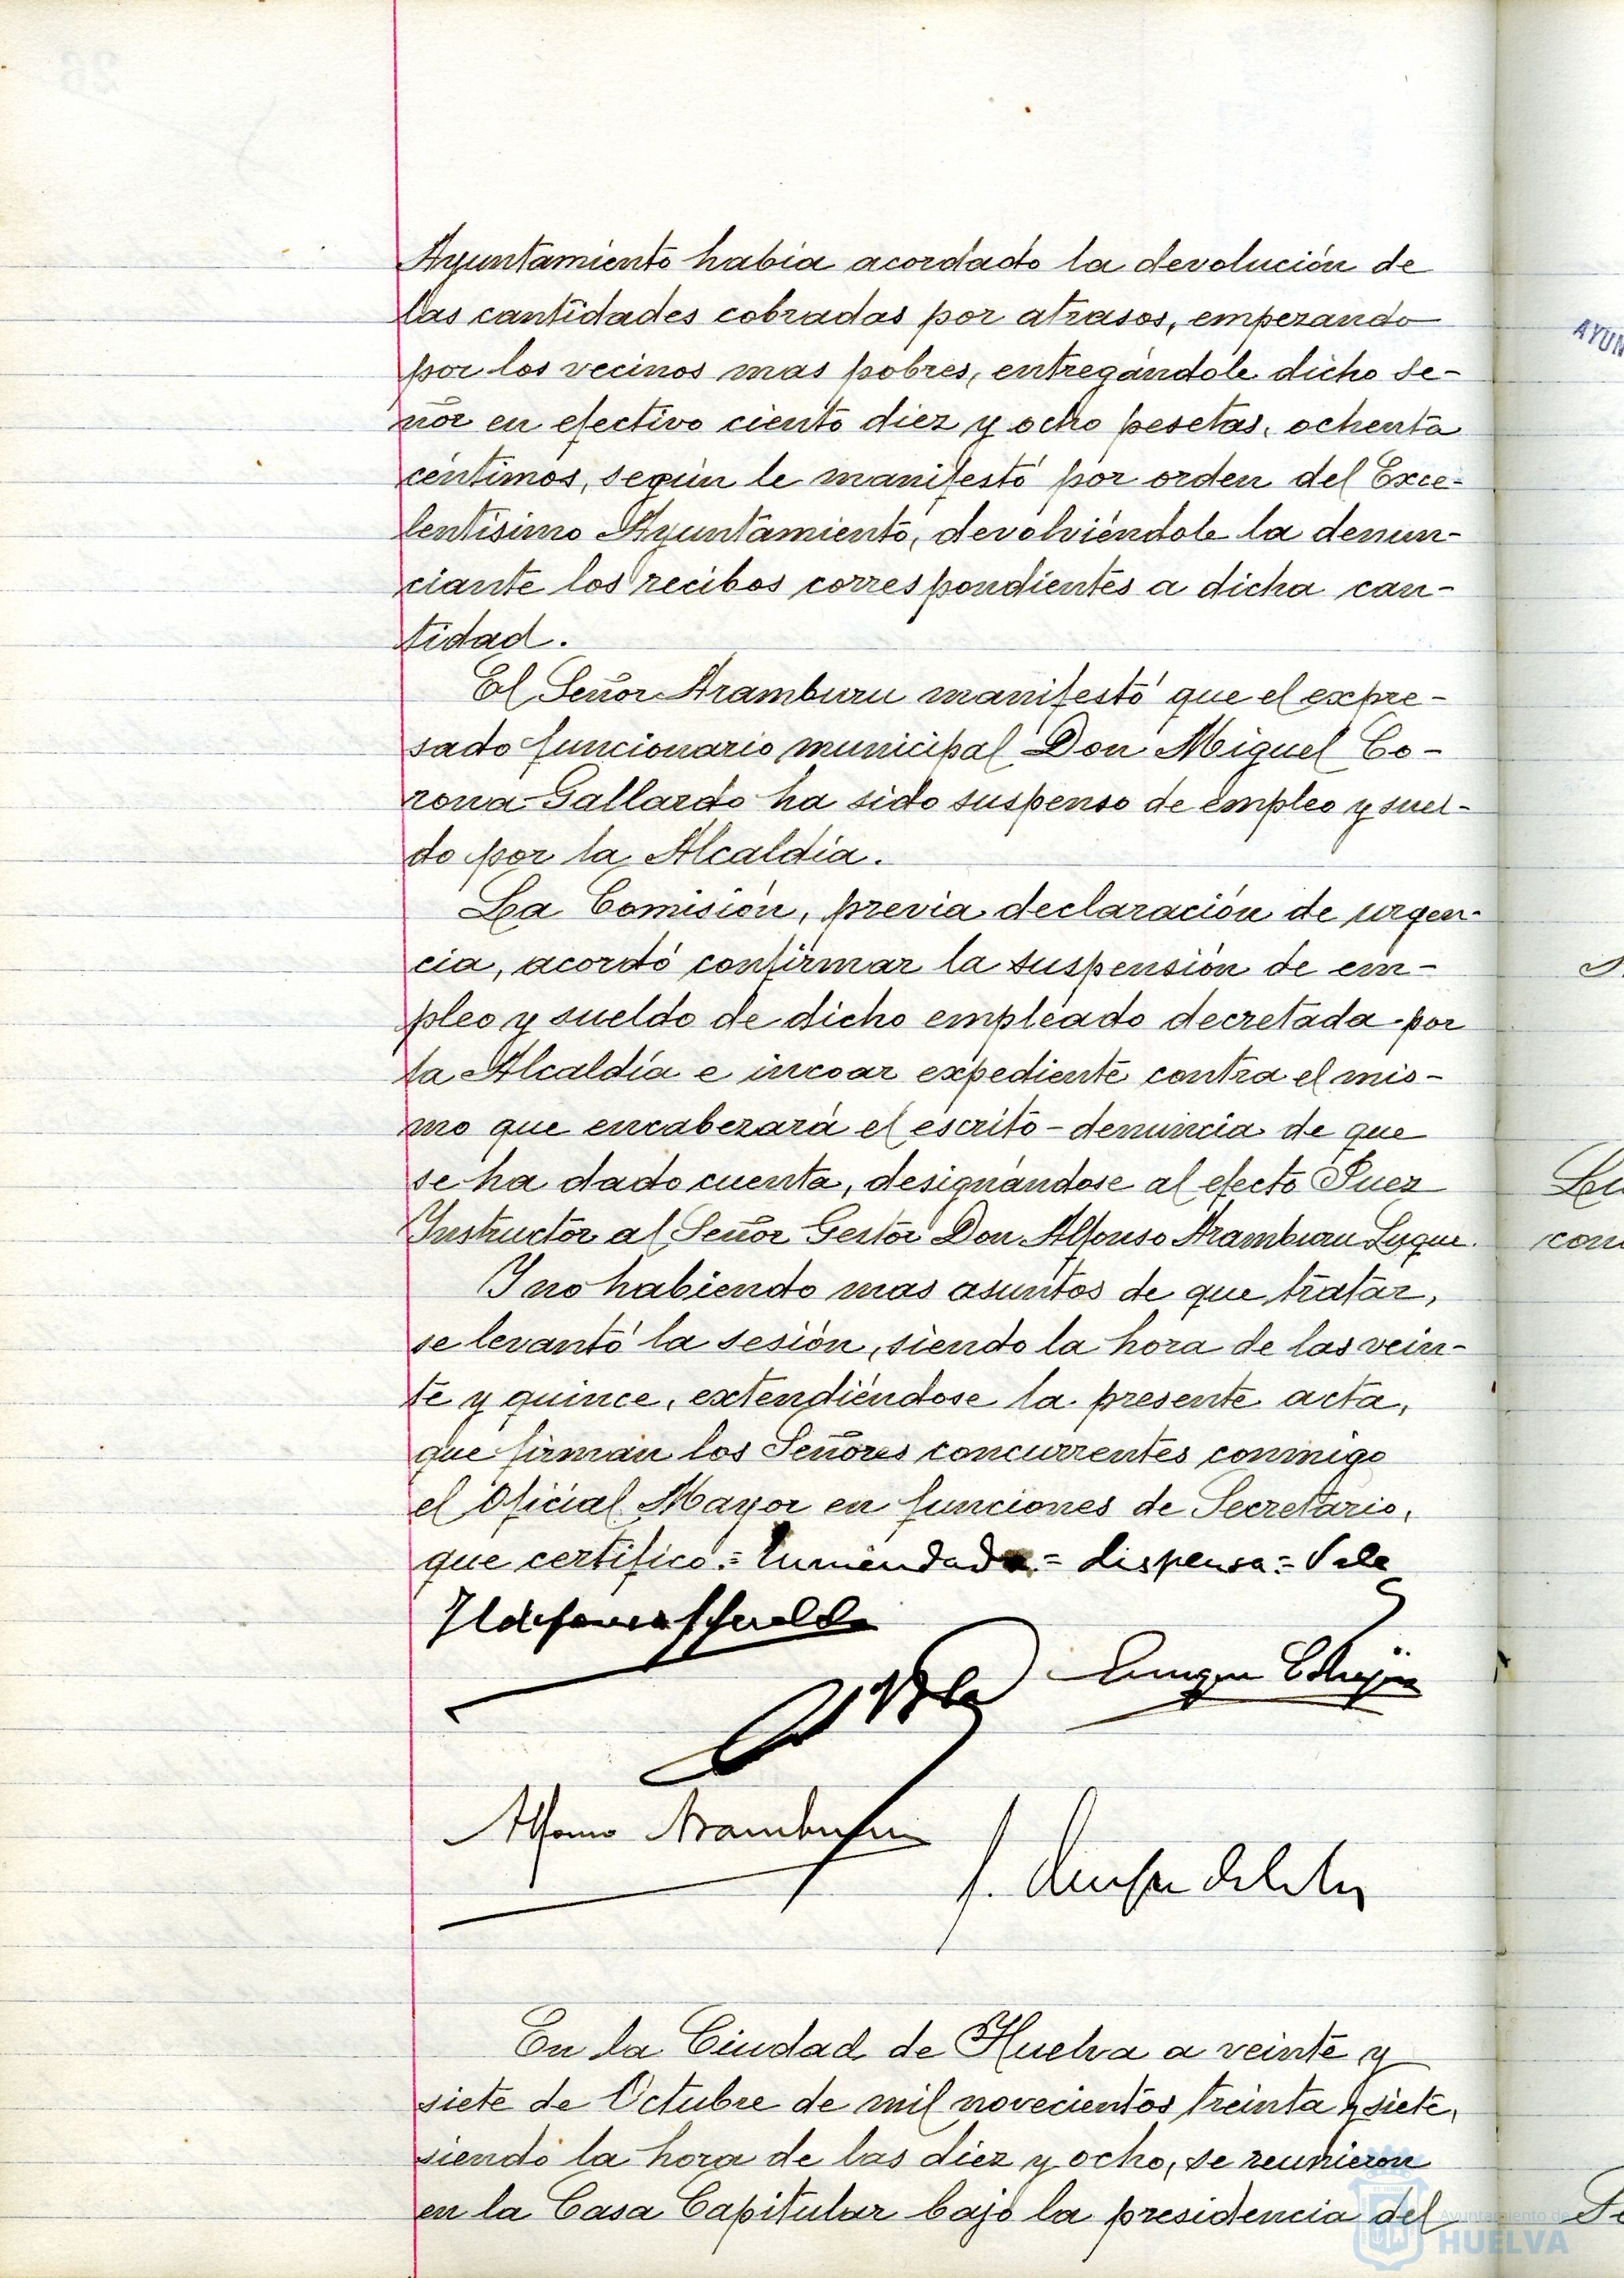 Ayuntamiento había acordado la devolución de
las cantidades cobradas por atrasos, empezando
por los vecinos mas pobres, entregándole dicho Se-
ñor en efectivo ciento diez y ocho pesetas, ochenta
céntimos, según le manifestó por orden del Exce-
lentísimo Ayuntamiento, devolviéndole la denun-
ciante los recibos correspondientes a dicha can-
tidad.
El Señor Aramburu manifestó que el expre-
sado funcionario municipal Don Miguel Co-
rona Gallardo ha sido suspenso de empleo y suel-
do por la Alcaldía.
La Comisión, previa declaración de urgen-
cia, acordó confirmar la suspensión de em-
pleo y sueldo de dicho empleado decretada por
la Alcaldía e incoar expediente contra el mis-
mo que encabezará el escrito-denuncia de que
se ha dado cuenta, designándose al efecto Juez
Instructor al Señor Gestor Don Alfonso Aramburu Luque.
Y no habiendo mas asuntos de que tratar,
se levantó la sesión, siendo la hora de las vein-
te y quince, extendiéndose la presente acta,
que firman los Señores concurrentes conmigo
el Oficial Mayor en funciones de Secretario,
que certifico.= Enmendado.= dispensa.= Vale
Alfonso Aramburu
En la Ciudad de Huelva a veinte y
siete de Octubre de mil novecientos treinta y siete,
siendo la hora de las diez y ocho, se reunieron
en la Casa Capitular bajo la presidencia del
Ayuntamiento de
HUELVA
AYUN